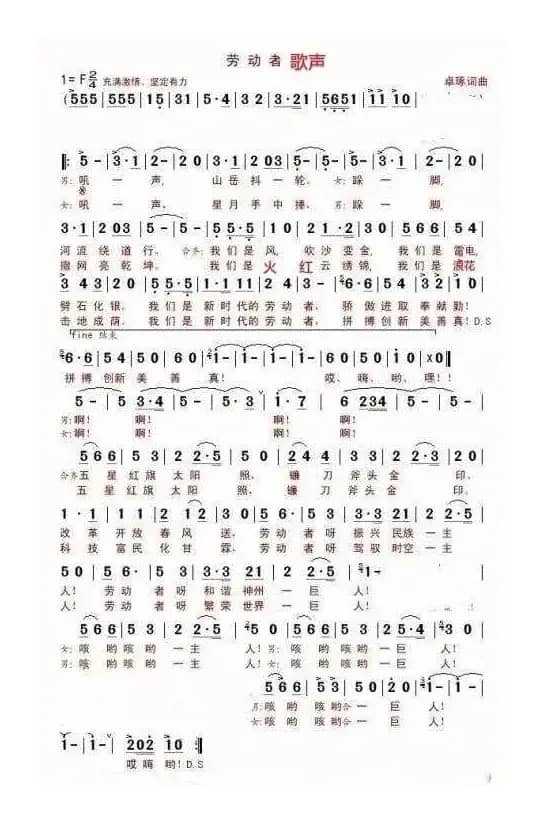 劳动者 歌声
1=F 2/4 充满激情、坚定有力 卓琢词曲
(555 | 555 | 15 | 31 | 5·4 | 32 | 3·21 | 5651 | 11 10 |
5- | 3·1 | 2- | 20 | 3·1 | 203 | 5·5 | 20 | 5- | 3·1 | 2- | 20 |
男:吼 一 声, 山岳抖一轮、 女:跺 一 脚,
女:吼 一 声、 星月手中捧、 男:跺 一 脚,
3·1 | 203 | 5·5 | 10 | 5·5 | 61 | 203 | 12 | 30 | 566 | 54 |
河流绕道行。 合齐:我们是风, 吹沙变金, 我们是雷电,
撒网亮乾坤。 我们是 火 红云绣锦, 我们是 浪花
343 | 20 | 55·5 | 1·11 | 22 | 5·6 | 54 | 34 | 32 | 10 |
劈石化银。 我们是新时代的劳动者、 骄傲进取奉献勤!
击地成荫。 我们是新时代的劳动者、 拼搏创新美善真!D.S
fine 结束
6·6 | 54 | 50 | 6·6 | 1- | 1- | 1- | 1- | 60 | 50 | 10 | X0 ‖
拼搏创新美善真! 哎、嗨、哟、嘿!!
5- | 5- | 3·4 | 5- | 5- | 5·3 | 1·7 | 6 234 | 5- | 5- |
男:啊! 啊! 啊! 啊!
女:啊! 啊! 啊! 啊!
566 | 54 | 5·6 | 32 | 50 | 12 | 34 | 566 | 32 | 20 |
合齐:五星红旗太阳照、镰刀斧头金印、
五星红旗太阳照、镰刀斧头金印。
改革开放春风送、劳动者呀振兴民族一主
科技富民化甘霖、劳动者呀驾驭时空一主
人! 劳动者呀和谐神州一巨人!
人! 劳动者呀繁荣世界一巨人!
女:咳哟咳哟一主人!男:咳哟咳哟一巨人!
男:咳哟咳哟一主人!女:咳哟咳哟一巨人!
男:咳哟咳哟合一巨人!
女:咳哟咳哟合一巨人!
1- | 1- | 202 | 10 :‖
哎嗨哟!D.S